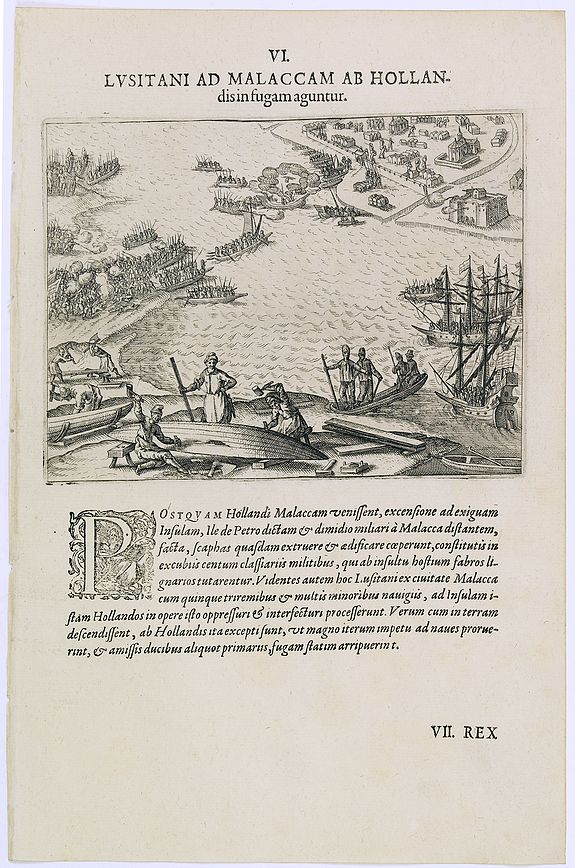 VI.
LVSITANI AD MALACCAM AB HOLLAN-
dis in fugam aguntur.
POSTQVAM Hollandi Malaccam venissent, excensione ad exiguam
Insulam, Ile de Petro dictam & dimidio miliari à Malacca distantem,
facta, scaphas quasdam extruere & ædificare cœperunt, constitutis in
excubiis centum classiariis militibus, qui ab insultu hostium fabros li-
gnarios tutarentur. Videntes autem hoc Lusitani ex ciuitate Malacca
cum quinque triremibus & multis minoribus nauigiis, ad Insulam i-
stam Hollandos in opere isto oppressuri & interfecturi processerunt. Verum cum in terram
descendissent, ab Hollandis ita excepti sunt, vt magno iterum impetu ad naues prorue-
rint, & amissis ducibus aliquot primariis, fugam statim arripuerint.
VII. REX